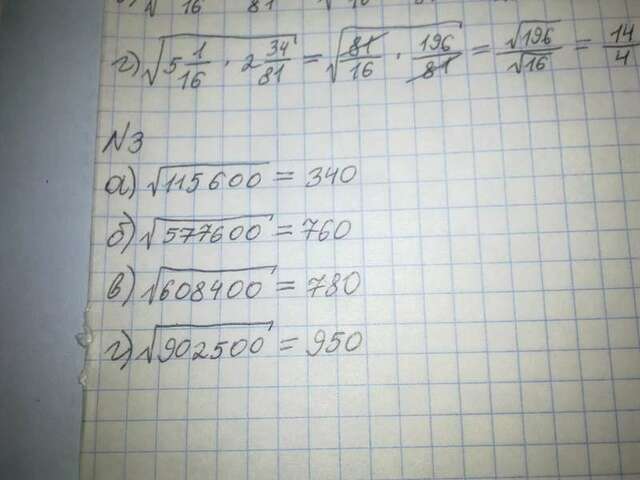 16 81 √16
г) √(5 1/16 · 2 34/81) = √(81/16 · 196/81) = √196/√16 = 14/4
№3
а) √115600 = 340
б) √577600 = 760
в) √608400 = 780
г) √902500 = 950